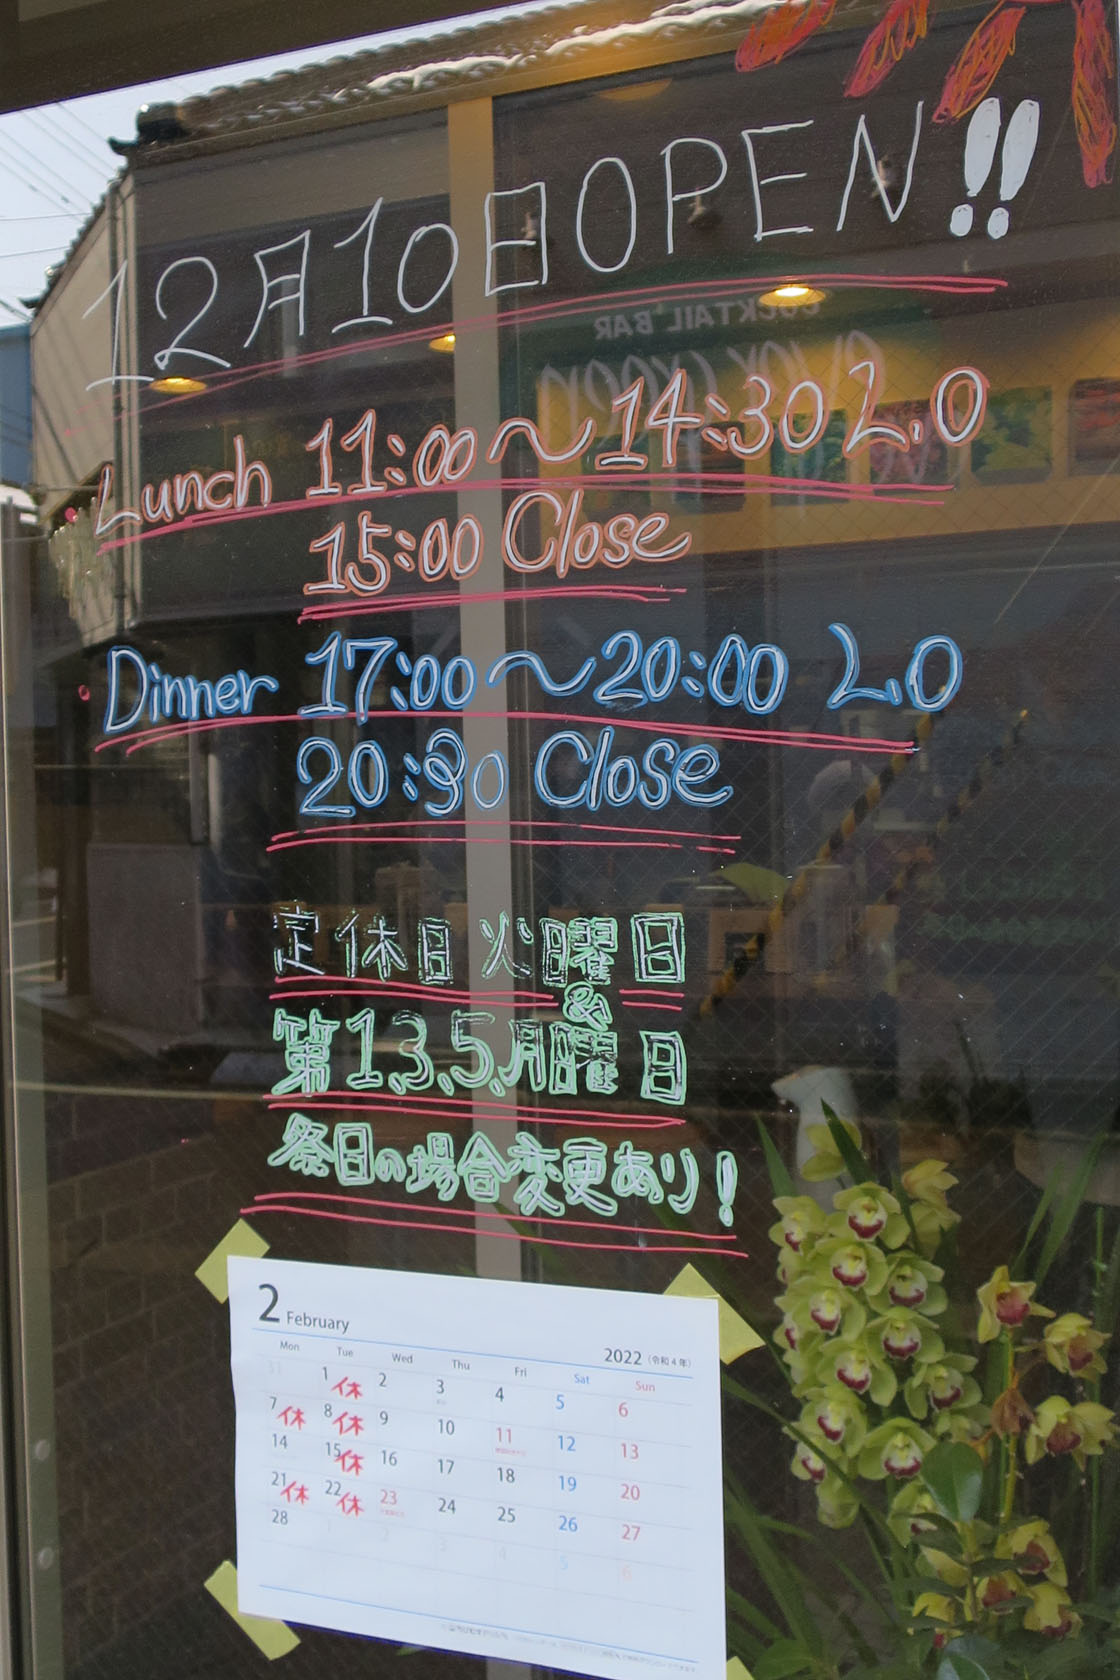 12月10日OPEN!!
COCKTAIL BAR
・Lunch 11:00〜14:30 L.O
15:00 Close
・Dinner 17:00〜20:00 L.O
20:30 Close
定休日 火曜日
&
第1,3,5,月曜日
祭日の場合変更あり!
2 February
2022 (令和4年)
Mon Tue Wed Thu Fri Sat Sun
31 1休 2 3 4 5 6
7休 8休 9 10 11 12 13
14 15休 16 17 18 19 20
21休 22休 23 24 25 26 27
28 1 2 3 4 5 6